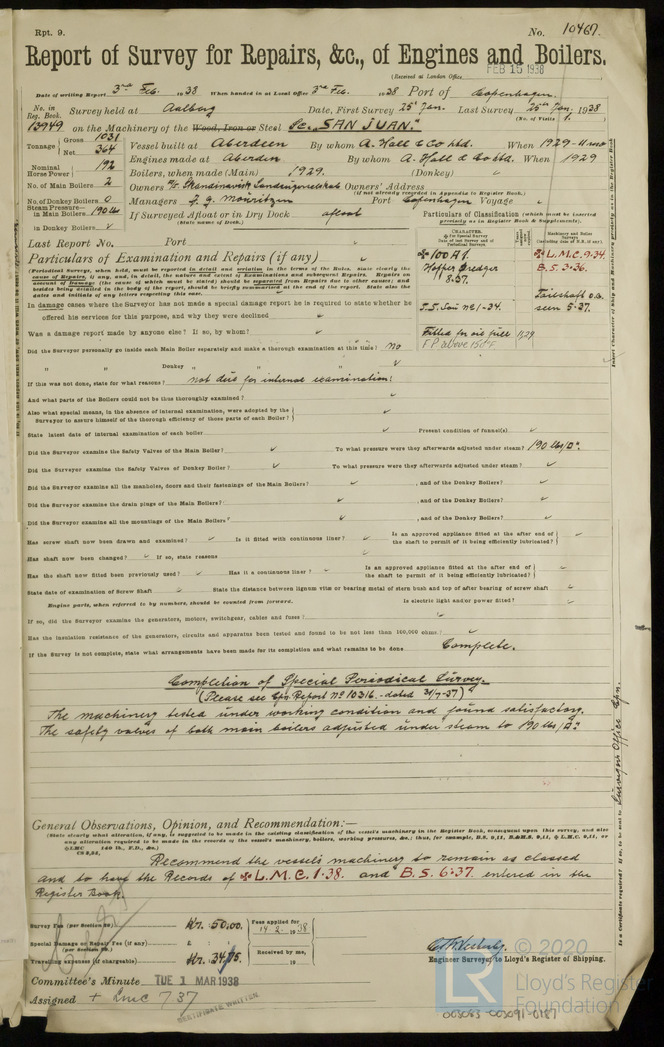 Rpt. 9.
No. 10467.
Report of Survey for Repairs, &c., of Engines and Boilers.
(Received at London Office
FEB 15 1938
Date of writing Report 3rd Feb. 1938 When handed in at Local Office 3rd Feb. 1938 Port of Copenhagen.
No. in Reg. Book. Survey held at Aalborg Date, First Survey 25th Jan. Last Survey 25th Jan. 1938
(No. of Visits 1.)
13949 on the Machinery of the Wood, Iron or Steel Sc. "SAN JUAN."
Tonnage Gross 1031 Net 364
Vessel built at Aberdeen By whom A. Hall & Co Ltd. When 1929
Engines made at Aberdeen By whom A. Hall & Co Ltd. When 1929
Nominal Horse Power 192
Boilers, when made (Main) 1929. (Donkey)
No. of Main Boilers 2
Owners Owners' Address
(if not already recorded in Appendix to Register Book.)
No. of Donkey Boilers 0
Managers Port Copenhagen Voyage
Steam Pressure in Main Boilers 190 lbs
in Donkey Boilers
If Surveyed Afloat or in Dry Dock afloat
(State name of Dock.)
Particulars of Classification (which must be inserted precisely as in Register Book & Supplements).
Last Report No. Port
Particulars of Examination and Repairs (if any)
(Periodical Surveys, when held, must be reported in detail and seriatim in the terms of the Rules.
100 A1.
Hopper Dredger
3.37.
L.M.C. 9.34.
B.S. 3.36.
Tailshaft
seen 5.37.
S.S. No 1-34.
Fitted for oil fuel 11,29
F.P. above 150°F
In damage cases where the Surveyor has not made a special damage report he is required to state whether he
offered his services for this purpose, and why they were declined
Was a damage report made by anyone else? If so, by whom?
Did the Surveyor personally go inside each Main Boiler separately and make a thorough examination at this time? no
" " Donkey " " " "
If this was not done, state for what reasons? not due for internal examination.
And what parts of the Boilers could not be thus thoroughly examined?
Also what special means, in the absence of internal examination, were adopted by the
Surveyor to assure himself of the thorough efficiency of those parts of each Boiler?
State latest date of internal examination of each boiler Present condition of funnel(s)
Did the Surveyor examine the Safety Valves of the Main Boiler? To what pressure were they afterwards adjusted under steam? 190 lbs/□".
Did the Surveyor examine the Safety Valves of Donkey Boiler? To what pressure were they afterwards adjusted under steam?
Did the Surveyor examine all the manholes, doors and their fastenings of the Main Boilers? , and of the Donkey Boilers?
Did the Surveyor examine the drain plugs of the Main Boilers? , and of the Donkey Boilers?
Did the Surveyor examine all the mountings of the Main Boilers? , and of the Donkey Boilers?
Has screw shaft now been drawn and examined? Is it fitted with continuous liner? Is an approved appliance fitted at the after end of
the shaft to permit of it being efficiently lubricated?
Has shaft now been changed? If so, state reasons
Has the shaft now fitted been previously used? Has it a continuous liner? Is an approved appliance fitted at the after end of
the shaft to permit of it being efficiently lubricated?
State date of examination of Screw Shaft State the distance between lignum vitæ or bearing metal of stern bush and top of after bearing of screw shaft
Engine parts, when referred to by numbers, should be counted from forward. Is electric light and/or power fitted?
If so, did the Surveyor examine the generators, motors, switchgear, cables and fuses?
Has the insulation resistance of the generators, circuits and apparatus been tested and found to be not less than 100,000 ohms?
If the Survey is not complete, state what arrangements have been made for its completion and what remains to be done Complete.
Completion of Special Periodical Survey.
(Please see Cpn. Report No 10316. - dated 31/7-37)
The machinery tested under working condition and found satisfactory.
The safety valves of both main boilers adjusted under steam to 190 lbs/□".
General Observations, Opinion, and Recommendation:—
(State clearly what alteration, if any, is suggested to be made in the existing classification of the vessel's machinery in the Register Book, consequent upon this survey, and also
any alteration required to be made in the records of the vessel's machinery, boilers, working pressures, &c.
Recommend the vessel's machinery to remain as classed
and to have the Records of L.M.C. 1.38. and B.S. 6.37. entered in the
Register Book.
Survey Fee (per Section 29) Kr. 50.00. Fees applied for 14.2.1938
Special Damage or Repair Fee (if any) £
(per Section 29.)
Travelling expenses (if chargeable) Kr. 34.75. Received by me, 19
Engineer Surveyor to Lloyd's Register of Shipping.
Committee's Minute TUE 1 MAR 1938
Assigned + LMC 7 37
CERTIFICATE WRITTEN
© 2020
Lloyd's Register
Foundation
LR
003083-003091-0187